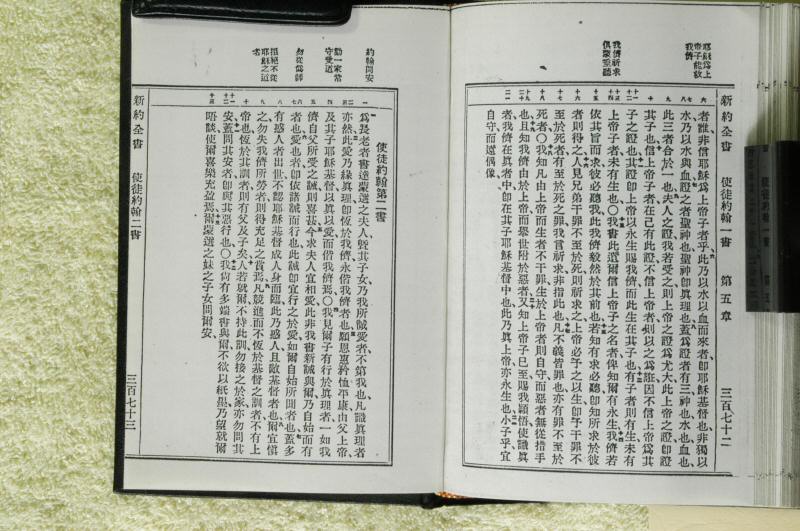 新約全書　使徒約翰一書　第五章　三百七十二
耶穌爲上帝子能救我儕
我儕祈求俱蒙垂聽
者誰非信耶穌爲上帝子者乎此乃以水以血而來者卽耶穌基督也非獨以
水乃以水與血證之者聖神也聖神卽眞理也蓋爲證者有三神也水也血也
此三者合於一也夫人之證我若受之則上帝之證爲尤大此上帝之證卽證
其子也信上帝子者在己有此證不信上帝者則以之爲誑因不信上帝爲其
子之證也其證卽上帝以永生賜我儕而此生在其子也有子者則有生未有
上帝子者未有生也〇我書此達爾信上帝子之名者俾知爾有永生我儕若
依其旨而求彼必聽我此我儕毅然於其前也若知有求必聽卽知所求於彼
者則得之人見兄弟干罪不至於死則祈求之上帝必予之以生卽予干罪不
至於死者有至於死之罪我言祈求非指此也凡不義皆罪也亦有罪不至於
死者〇我知凡由上帝而生者不干罪生於上帝者則自守而惡者無從措手
也且知我儕由於上帝而舉世附於惡者又知上帝子已至賜我穎悟使識眞
者我儕在眞者中卽在其子耶穌基督中也此乃眞上帝亦永生也小子乎宜
自守而遠偶像
約翰問安
勸一家常守受道
勿從僞師
拒絕不從耶穌之道者
使徒約翰第二書
爲長老者書達蒙選之夫人曁其子女乃我所誠愛者不第我也凡識眞理者
亦然此愛乃緣眞理卽恆於我儕永偕我儕者也願恩惠矜恤平康由父上帝
及其子耶穌基督以眞以愛而偕我儕焉〇我見爾子有行於眞理者一如我
儕自父所受之誡則喜甚今求夫人宜相愛此非我書新誡與爾乃自始而有
者也愛也者卽依諸誡而行也此誡卽宜行之於愛如爾自始所聞者也蓋多
有惑人者出世不認耶穌基督成人身而臨此乃惑人且敵基督者也爾宜愼
之勿失我儕所勞者則得充足之賞焉凡競進而不恆於基督之訓者不有上
帝也恆於其訓者則有父及子矣人若就爾不持此訓勿接之於家亦勿問其
安蓋問其安者卽與其惡行也〇我尙有多端書與爾不欲以紙墨乃望就爾
唔談使爾喜樂充盈焉爾蒙選之妹之子女問爾安
新約全書　使徒約翰二書　三百七十三